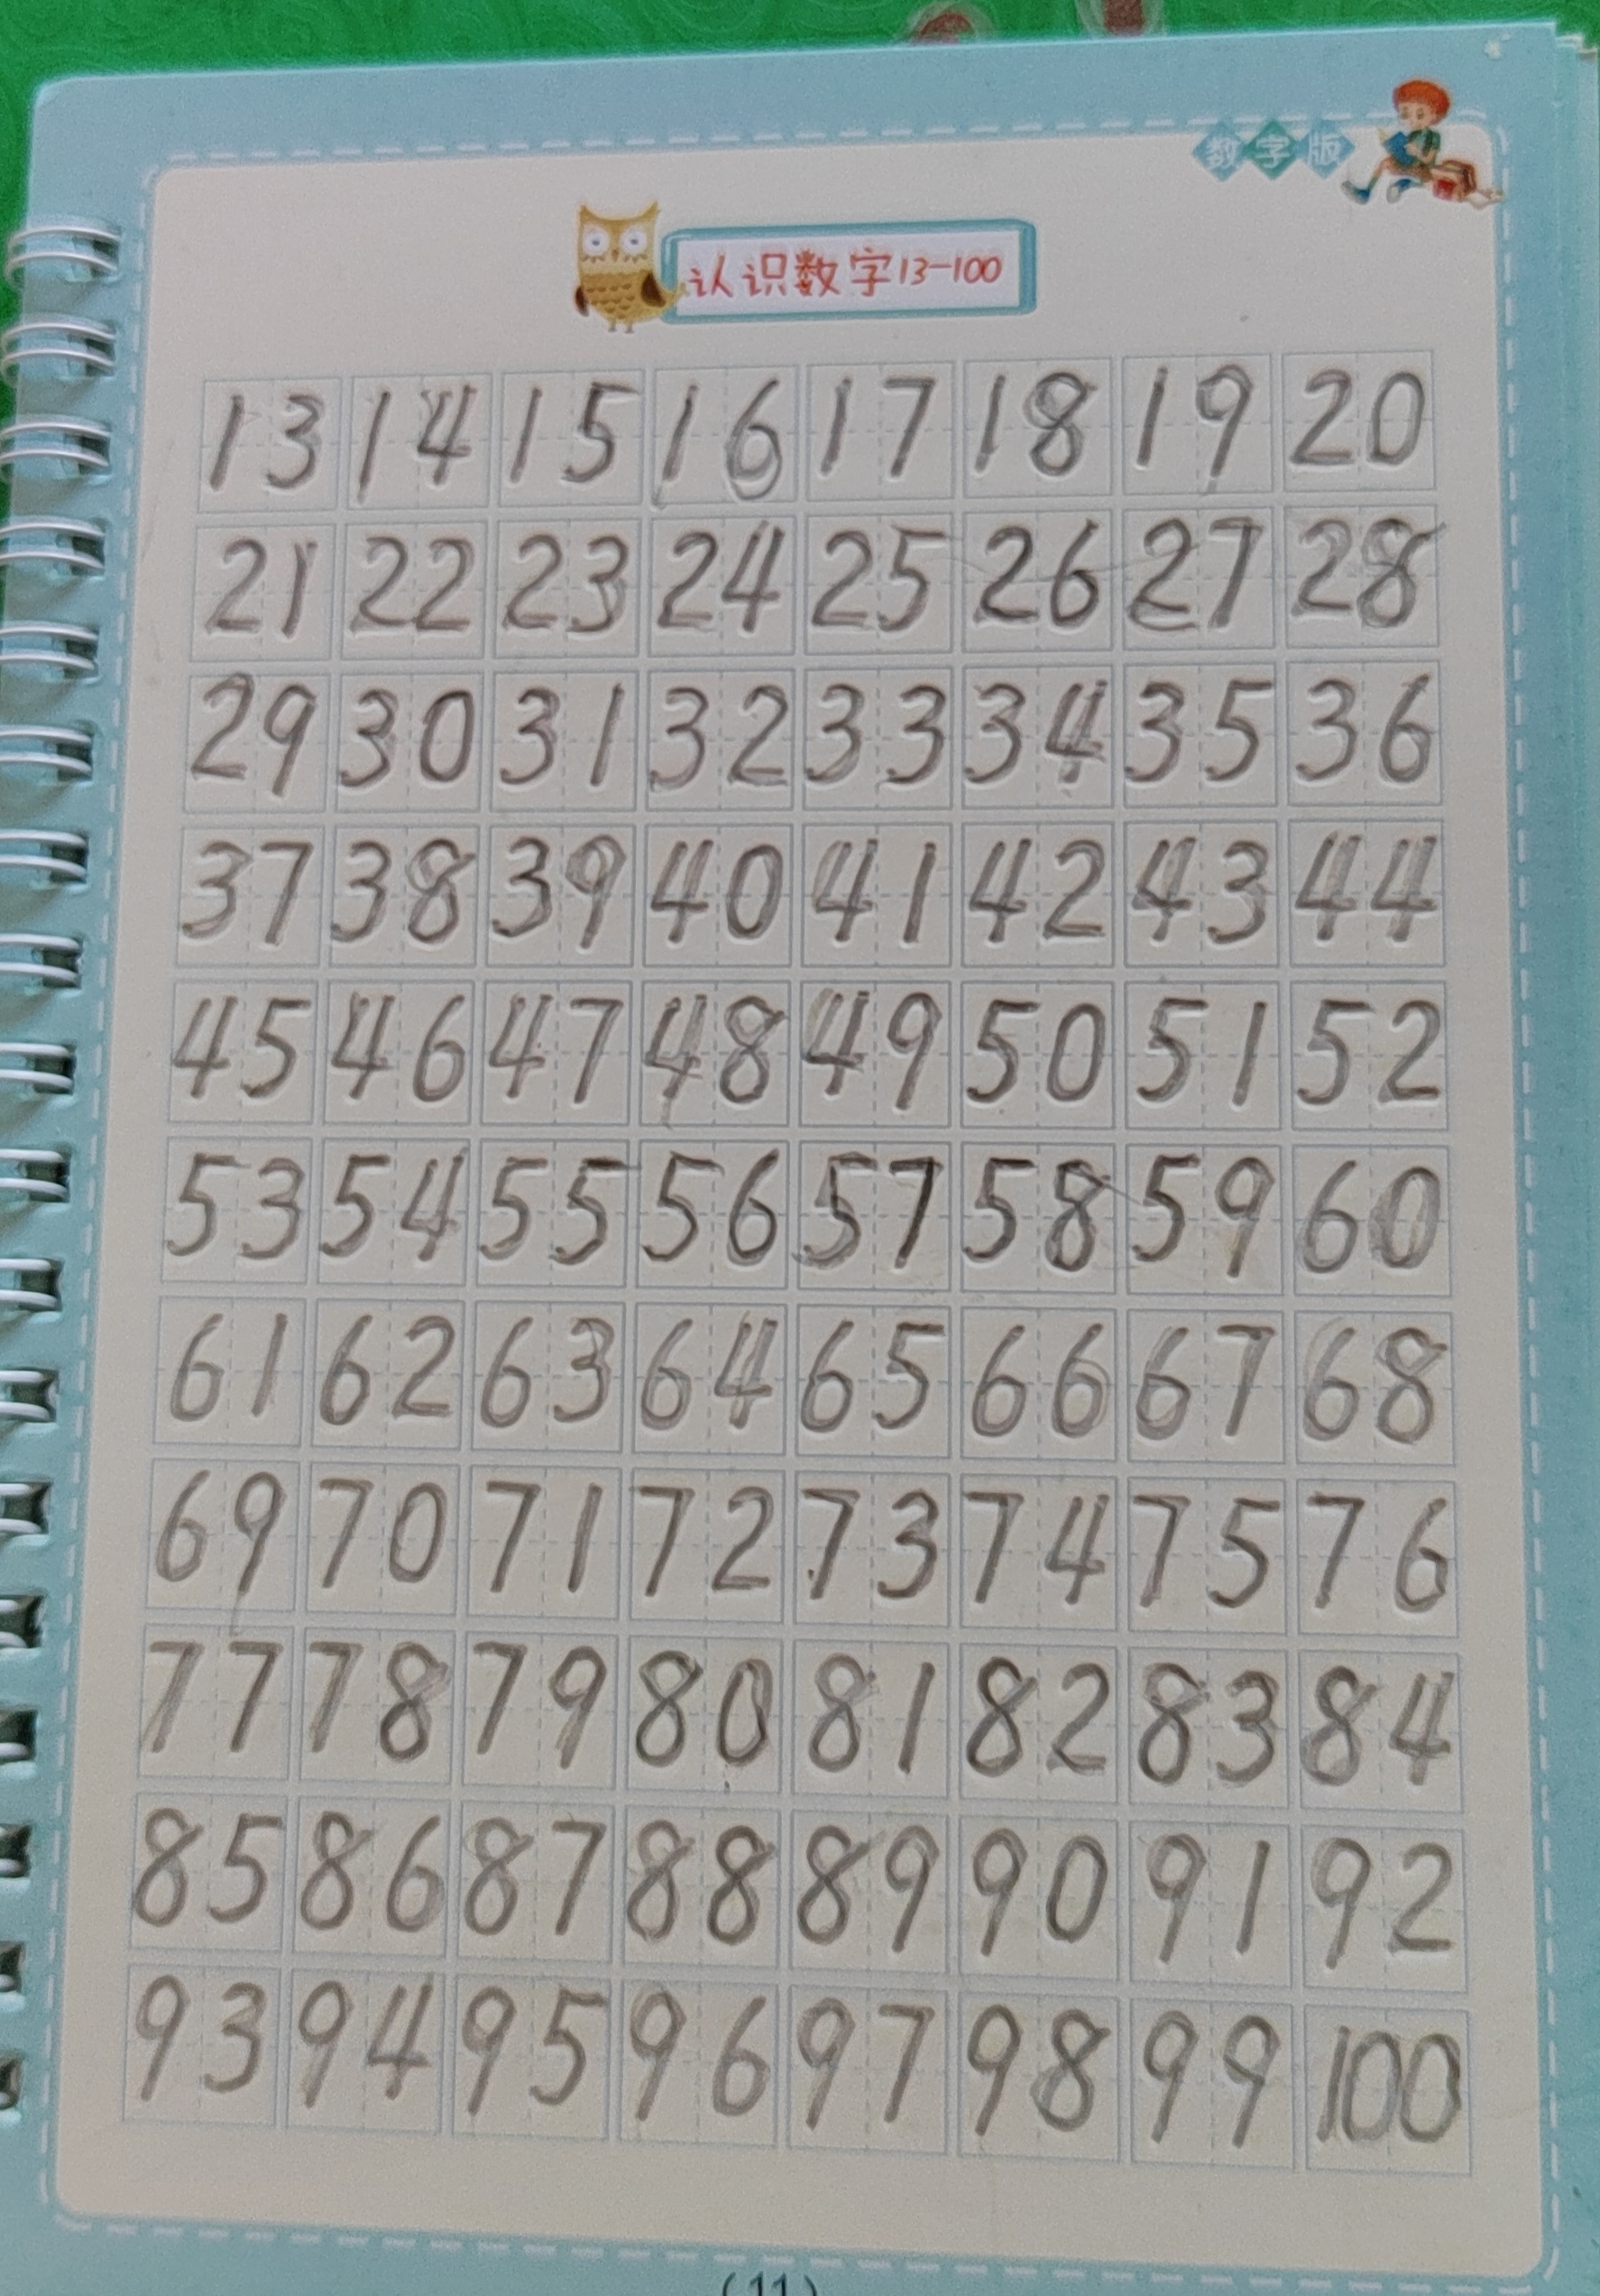 数字版
认识数字13-100
13 14 15 16 17 18 19 20
21 22 23 24 25 26 27 28
29 30 31 32 33 34 35 36
37 38 39 40 41 42 43 44
45 46 47 48 49 50 51 52
53 54 55 56 57 58 59 60
61 62 63 64 65 66 67 68
69 70 71 72 73 74 75 76
77 78 79 80 81 82 83 84
85 86 87 88 89 90 91 92
93 94 95 96 97 98 99 100
(11)